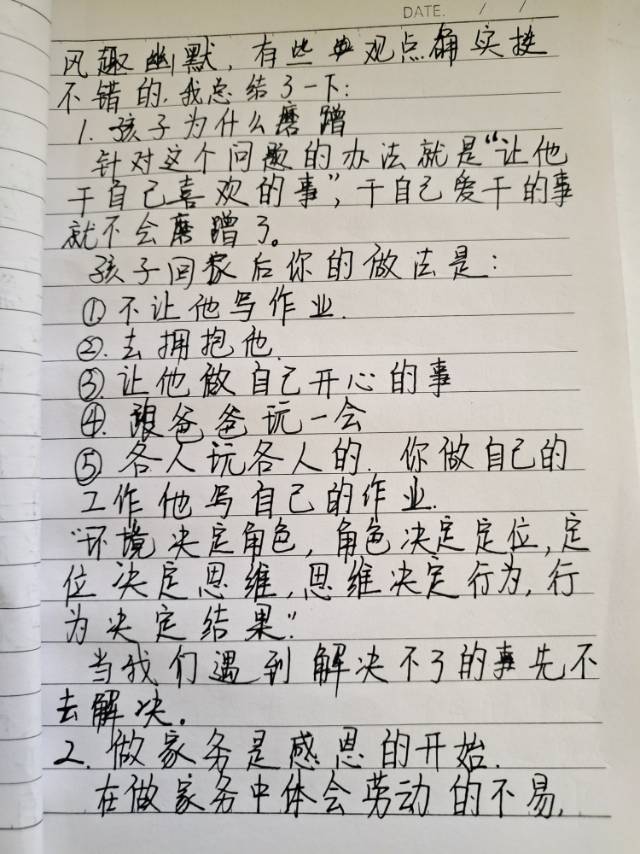 DATE. / /
风趣幽默，有些观点确实挺
不错的.我总结了一下：
1.孩子为什么磨蹭
针对这个问题的办法就是“让他
干自己喜欢的事”，干自己爱干的事
就不会磨蹭了。
孩子回家后你的做法是：
①不让他写作业.
②.去拥抱他.
③让他做自己开心的事
④.跟爸爸玩一会
⑤各人玩各人的.你做自己的
工作他写自己的作业.
“环境决定角色，角色决定定位，定
位决定思维，思维决定行为，行
为决定结果”.
当我们遇到解决不了的事先不
去解决。
2.做家务是感恩的开始.
在做家务中体会劳动的不易，